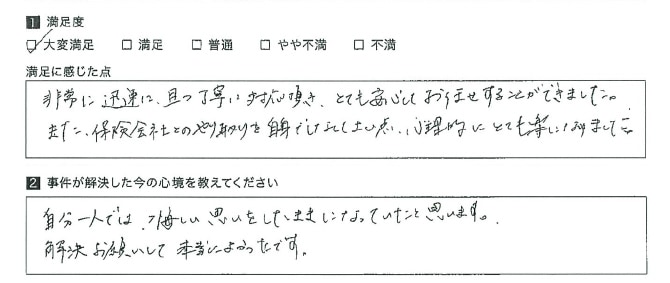 1 満足度
☑ 大変満足 □ 満足 □ 普通 □ やや不満 □ 不満
満足に感じた点
非常に迅速に、且つ丁寧に対応頂き、とても安心しておまかせすることができました。
また、保険会社とのやり取りを自身でしなくてよい点、心理的にとても楽になりました。
2 事件が解決した今の心境を教えてください
自分一人では、悔しい思いをしたままになっていたと思います。
解決お願いして本当によかったです。